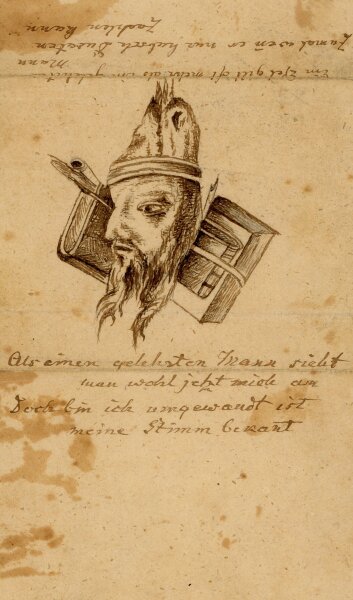 Ein Esel gilt oft mehr als ein gelehrter
Mann
Zumal wen er nur hubsch Ducaten
Zachlen kann
Als einen gelehrten Mann sieht
man wohl jetzt mich an
Doch bin ich umgewandt ist
meine Stimm bekant